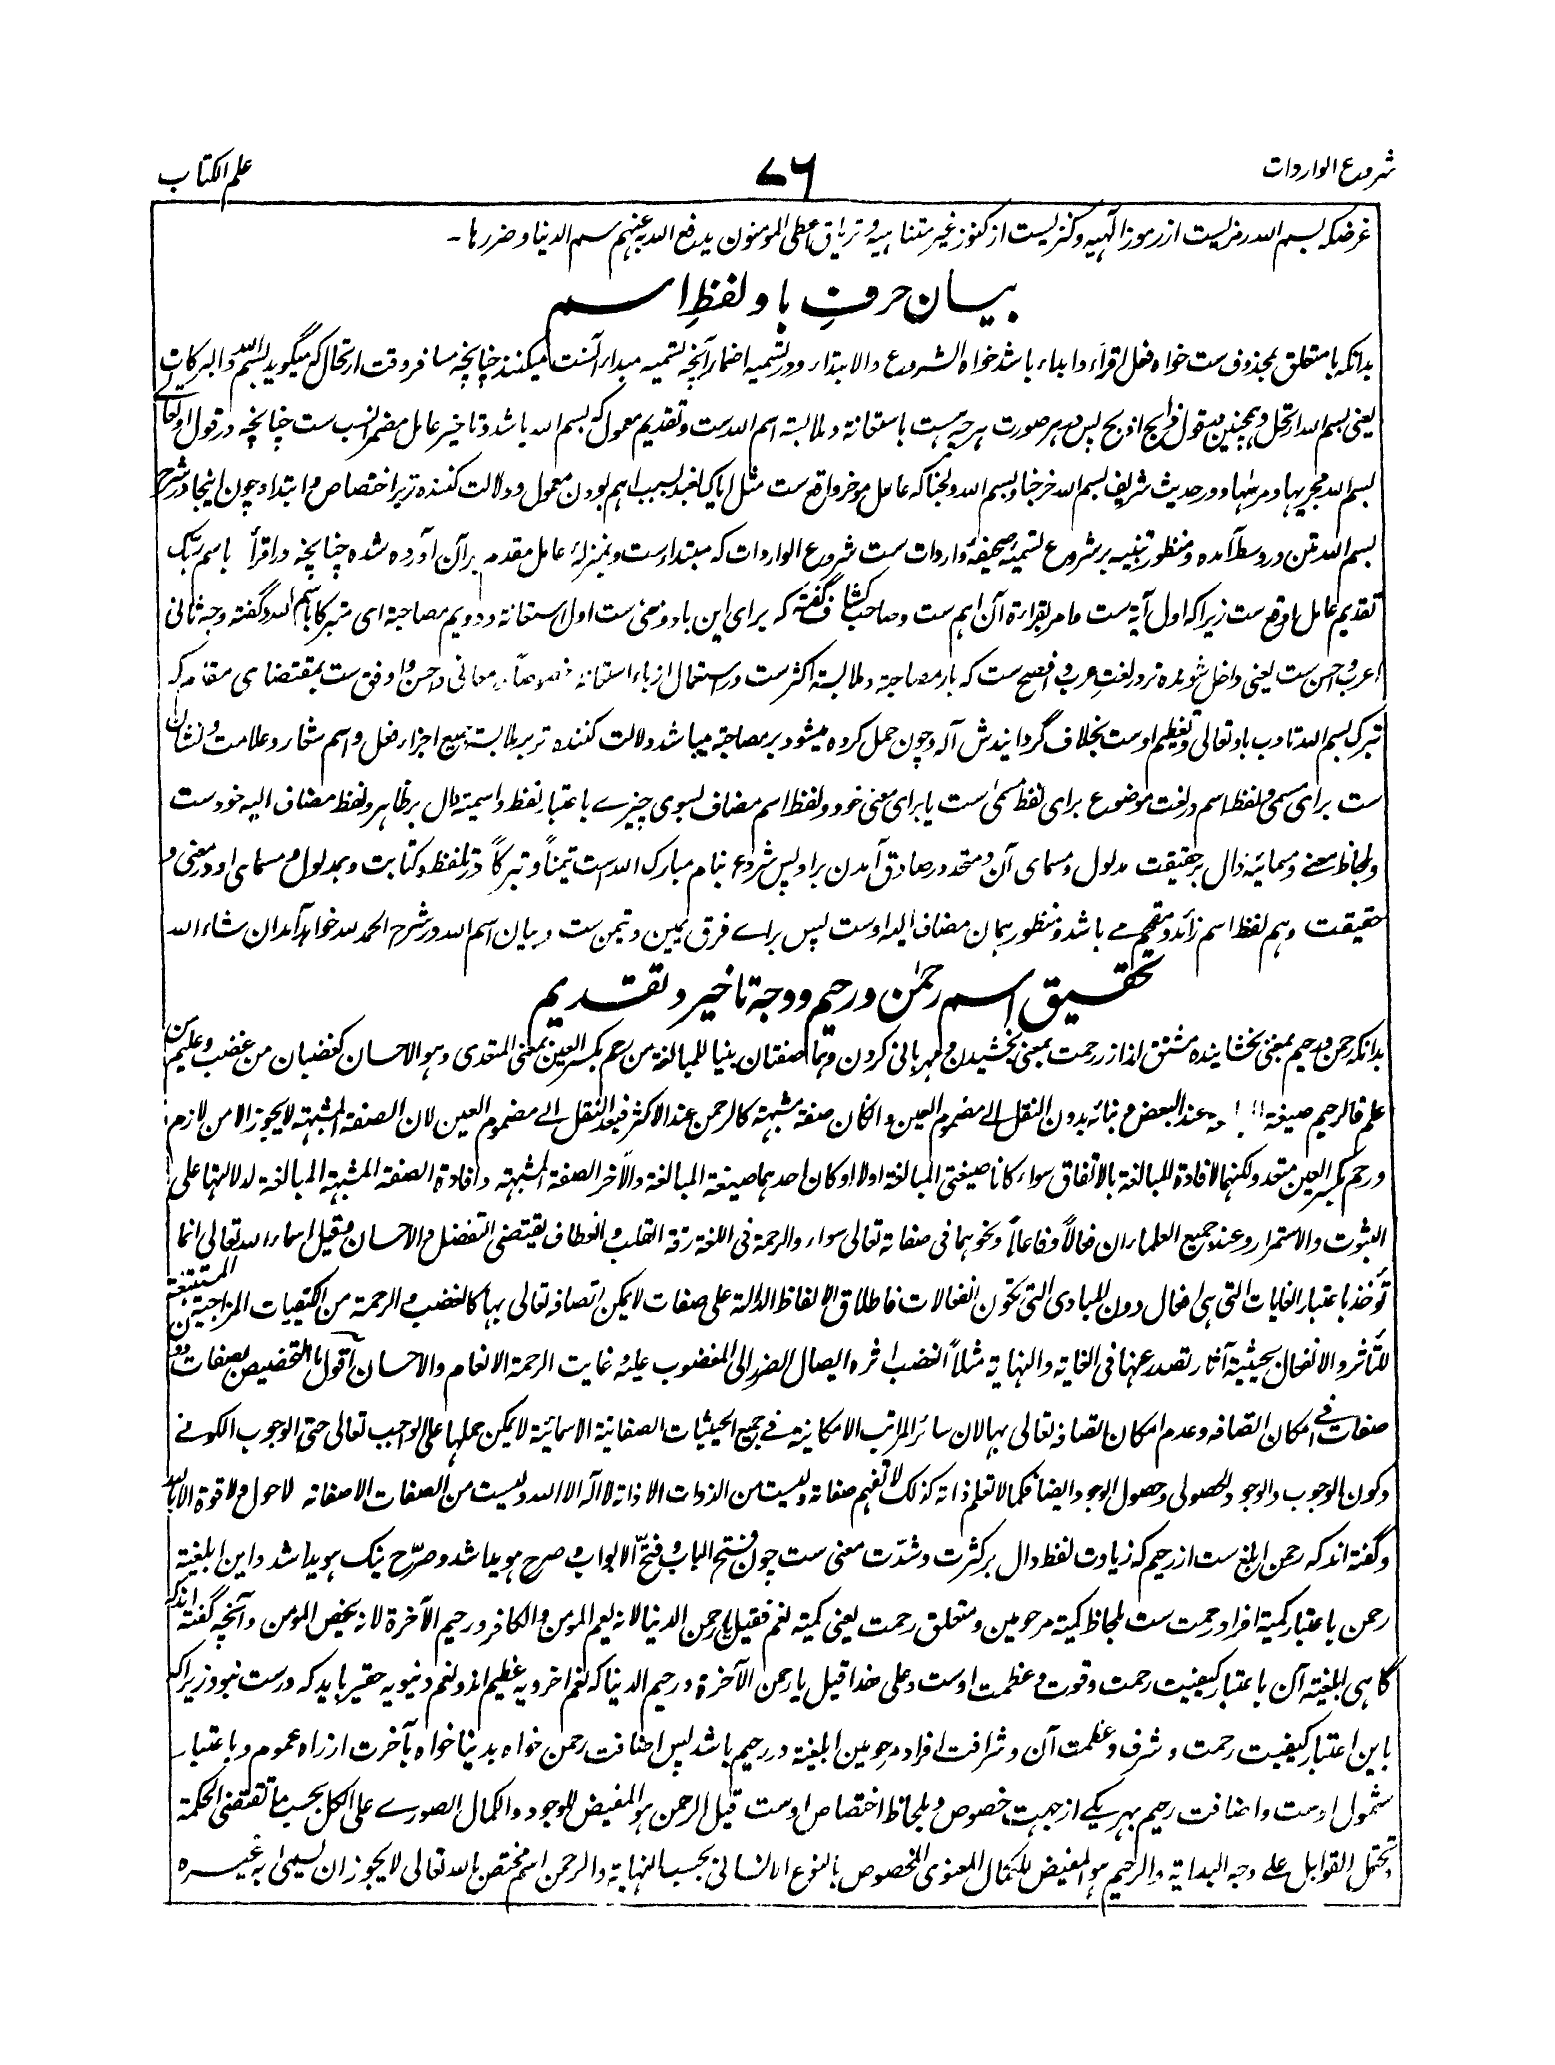 شروع الواردات
۷۶
علم الکتاب
غرضکہ بسم اللہ رمزیست از رموز الٓہیہ و کنزیست از کنوز غیر متناہیہ و تریاق اعطی المومنون یدفع اللہ بہ عنہم سم الدنیا و ضررہا۔
بیان حرفِ با و لفظِ اسم
بدانکہ با متعلق بمحذوف ست خواہ فعل اقراَ و ابداء باشد خواہ الشروع والابتداء و در تسمیہ اضمار آنچہ تسمیہ مبداء آنست میکنند چنانچہ مسافر وقت ارتحال کہ میگوید بسم اللہ والبرکات
یعنی بسم اللہ ارتحل و ہمچنین بقول ذابح اذبح پس در ہر صورت ہرچہ ہست باستعانۃ و ملابستہ اسم اللہ ست و تقدیم معمول کہ بسم اللہ باشد و تاخیر عامل مضمر انسب ست چنانچہ در قول او تعالے
بسم اللہ مجریہا و مرسٰہا و در حدیث شریف بسم اللہ خرجنا و بسم اللہ ولجنا کہ عامل موخر واقع ست مثل ایاک نعبد بسبب اہم بودن معمول و دلالت کنندہ تر بر اختصاص و ابتدا و چون اینجا در شرح
بسم اللہ متن در وسط آمدہ و منظور تنبیہ بر شروع تسمیۂ صحیفۂ واردات ست شروع الواردات کہ مبتداء ست و بمنزلۂ عامل مقدمہ بر آن آوردہ شدہ چنانچہ در اقرأ باسم ربک
تقدیم عامل واقع ست زیرا کہ اول آیۃ ست و امر بقراءۃ آن اہم ست و صاحب کشاف گفتہ کہ برای این با دو معنی ست اول استعانۃ و دویم مصاحبۃ ای متبرکا باسم اللہ و گفتہ وجہ ثانی
اعرب و احسن ست یعنی داخل شوندہ تر در لغتِ عرب و افصح ست کہ باء مصاحبۃ و ملابستہ اکثر ست در استعمال از باء استعانۃ خصوصاً در معانی و احسن و اوفق ست بمقتضای مقام کہ
تبرک بسم اللہ تادب باو تعالی و تعظیم اوست بخلاف گردانیدنش آلہ و چون حمل کردہ میشود بر مصاحبۃ میباشد دلالت کنندہ تر بر ملابستہ جمیع اجزاء فعل و اسم شعار و علامت و نشان
ست برای مسمی و لفظ اسم در لغت موضوع برای لفظ مسمیٰ است یا برای معنی خود و لفظ اسم مضاف بسوی چیزے باعتبار لفظ و اسمیتہ دال بر ظاہر و لفظ مضاف الیہ خودست
و بلحاظ معنے و مسمائیہ دال بر حقیقت مدلول و مسمای آن و متحد و صادق آمدن بر او پس شروع بنام مبارک اللہ ست تیمناً و تبرکاً در تلفظ و کتابت و بمدلول و مسمای او در معنی و
حقیقت و ہم لفظ اسم زائد و مقحم مے باشد و منظور ہمان مضاف الیہ اوست پس براے فرق یمین و تیمن ست و بیان اسم اللہ در شرح الحمد للہ خواہد آمد ان شاء اللہ
تحقیق اسم رحمٰن و رحیم و وجہ تاخیر و تقدیم
بدانکہ رحمن و رحیم بمعنی بخشایندہ مشتق اند از رحمت بمعنی بخشیدن و مہربانی کردن و ہما صفتان بنیا للمبالغۃ من رحم بکسر العین بمعنی المتعدی و ہو الاحسان کغضبان من غضب و علیم من
علم فالرحیم صیغۃ عند البعض و بنائہ بدون النقل الی مضموم العین و الکان صفۃ مشبہۃ کالرحمن عند الاکثر فبعد النقل الے مضموم العین لان الصفۃ المشبہۃ لا یجوز الا من لازم
و رحم بکسر العین متعد و لکنہما لافادۃ للمبالغۃ بالاتفاق سواء کانا صیغتی المبالغۃ اولا او کان احدہما صیغۃ المبالغۃ والآخر الصفۃ المشبہۃ و افادۃ الصفۃ المشبہۃ المبالغۃ لدلالتہا علی
الثبوت والاستمرار و عند جمیع العلماء ان فعالاً و فاعلاً و نحوہما فی صفاتہ تعالی سواء والرحمۃ فی اللغۃ رقۃ القلب و انعطاف یقتضی التفضل والاحسان و قیل اسماء اللہ تعالی انما
تؤخذ باعتبار الغایات التی ہی افعال دون المبادی التی تکون انفعالات فاطلاق الالفاظ الدالۃ علی صفات لا یمکن اتصافہ تعالی بہا کالغضب والرحمۃ من الکیفیات المزاجیۃ المستتبعۃ
للتأثر والانفعال بحیثیۃ آثار تصدر عنہا فی الغایۃ والنہایۃ مثلاً الغضب اثرہ ایصال الضرر الی المغضوب علیہ و غایت الرحمۃ الانعام والاحسان اقول ما التخصیص بصفات دون
صفات فے امکان اتصافہ و عدم امکان اتصافہ تعالی بہا لان سائر المراتب الامکانیۃ فے جمیع الحیثیات الصفاتیۃ الاسمائیۃ لا یمکن حملہا علی الواجب تعالی حتی الوجوب الکونے
و کون الوجوب والوجود الحصولی و حصول الوجود ایضا فکما لا تعلم ذاتہ کذلک لا تفہم صفاتہ و لیست من الذوات الا ذاتہ لا الہ الا اللہ و لیست من الصفات الا صفاتہ لا حول ولا قوۃ الا باللہ
و گفتہ اند کہ رحمن ابلغ ست از رحیم کہ زیادت لفظ دال بر کثرت و شدّت معنی ست چون فتح الباب و فتّح الابواب و صرح ہویدا شد و صرّح نیک ہویدا شد و این ابلغیتہ
رحمن باعتبار کمیۃ افراد رحمت ست بلحاظ کمیۃ مرحومین و متعلق رحمت یعنی کمیۃ نعم فقیل یا رحمن الدنیا لانہ یعم المومن والکافر و رحیم الآخرۃ لانہ یخص المومن و آنچہ گفتہ اند کہ
گاہی ابلغیتہ آن باعتبار کیفیت رحمت و قوت و عظمت اوست و علی ہذا قیل یا رحمن الآخرۃ و رحیم الدنیا کہ نعم اخرویہ عظیم اند و نعم دنیویہ حقیر باید کہ درست نبود زیراکہ
باین اعتبار کیفیت رحمت و شرف و عظمت آن و شرافت افراد مرحومین ابلغیۃ در رحیم باشد پس اضافت رحمن خواہ بدنیا خواہ بآخرت از راہ عموم و باعتبار
شمول اوست و اضافت رحیم بہر یکے از جہت خصوص و بلحاظ اختصاص اوست قیل الرحمن ہو المفیض للوجود والکمال الصورے علی الکل بحسب ما تقتضی الحکمۃ
و یحتمل القوابل علے وجہ البدایۃ والرحیم ہو المفیض للکمال المعنوی المخصوص بالنوع الانسانی بحسب النہایۃ والرحمن اسم مختص باللہ تعالی لا یجوز ان یسمیٰ بہ غیرہ